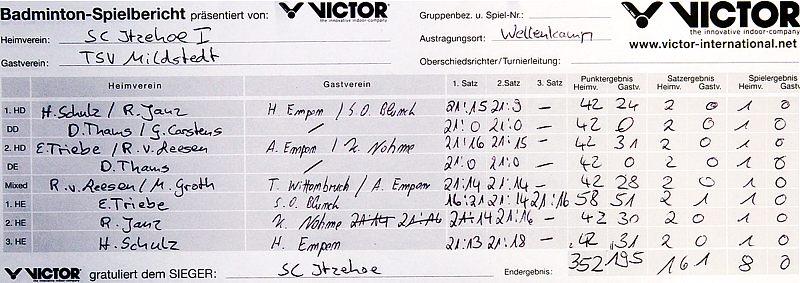 Badminton-Spielbericht präsentiert von: VICTOR the innovative indoor-company
Gruppenbez. u. Spiel-Nr.:
VICTOR the innovative indoor-company
Heimverein: SC Itzehoe I
Austragungsort: Wellenkamp
www.victor-international.net
Gastverein: TSV Mildstedt
Oberschiedsrichter/Turnierleitung:
Heimverein Gastverein 1. Satz 2.Satz 3. Satz Punktergebnis Heimv. Gastv. Satzergebnis Heimv. Gastv. Spielergebnis Heimv. Gastv.
1. HD H. Schulz / R. Janz H. Empen / S.O. 21:15 21:9 – 42 24 2 0 1 0
DD D. Thaus / G. Carstens / 21:0 21:0 – 42 0 2 0 1 0
2. HD E. Triebe / R. v. Reesen A. Empen / K. Nohme 21:16 21:15 – 42 31 2 0 1 0
DE D. Thaus / 21:0 21:0 – 42 0 2 0 1 0
Mixed R. v. Reesen / M. Groth T. / A. Empen 21:14 21:14 – 42 28 2 0 1 0
1. HE E. Triebe S.O. 16:21 21:14 21:16 58 51 2 1 1 0
2. HE R. Janz K. Nohme 21:14 21:16 21:14 21:16 – 42 30 2 0 1 0
3. HE H. Schulz H. Empen 21:13 21:18 – 42 31 2 0 1 0
VICTOR gratuliert dem SIEGER: SC Itzehoe Endergebnis: 352 195 16 1 8 0